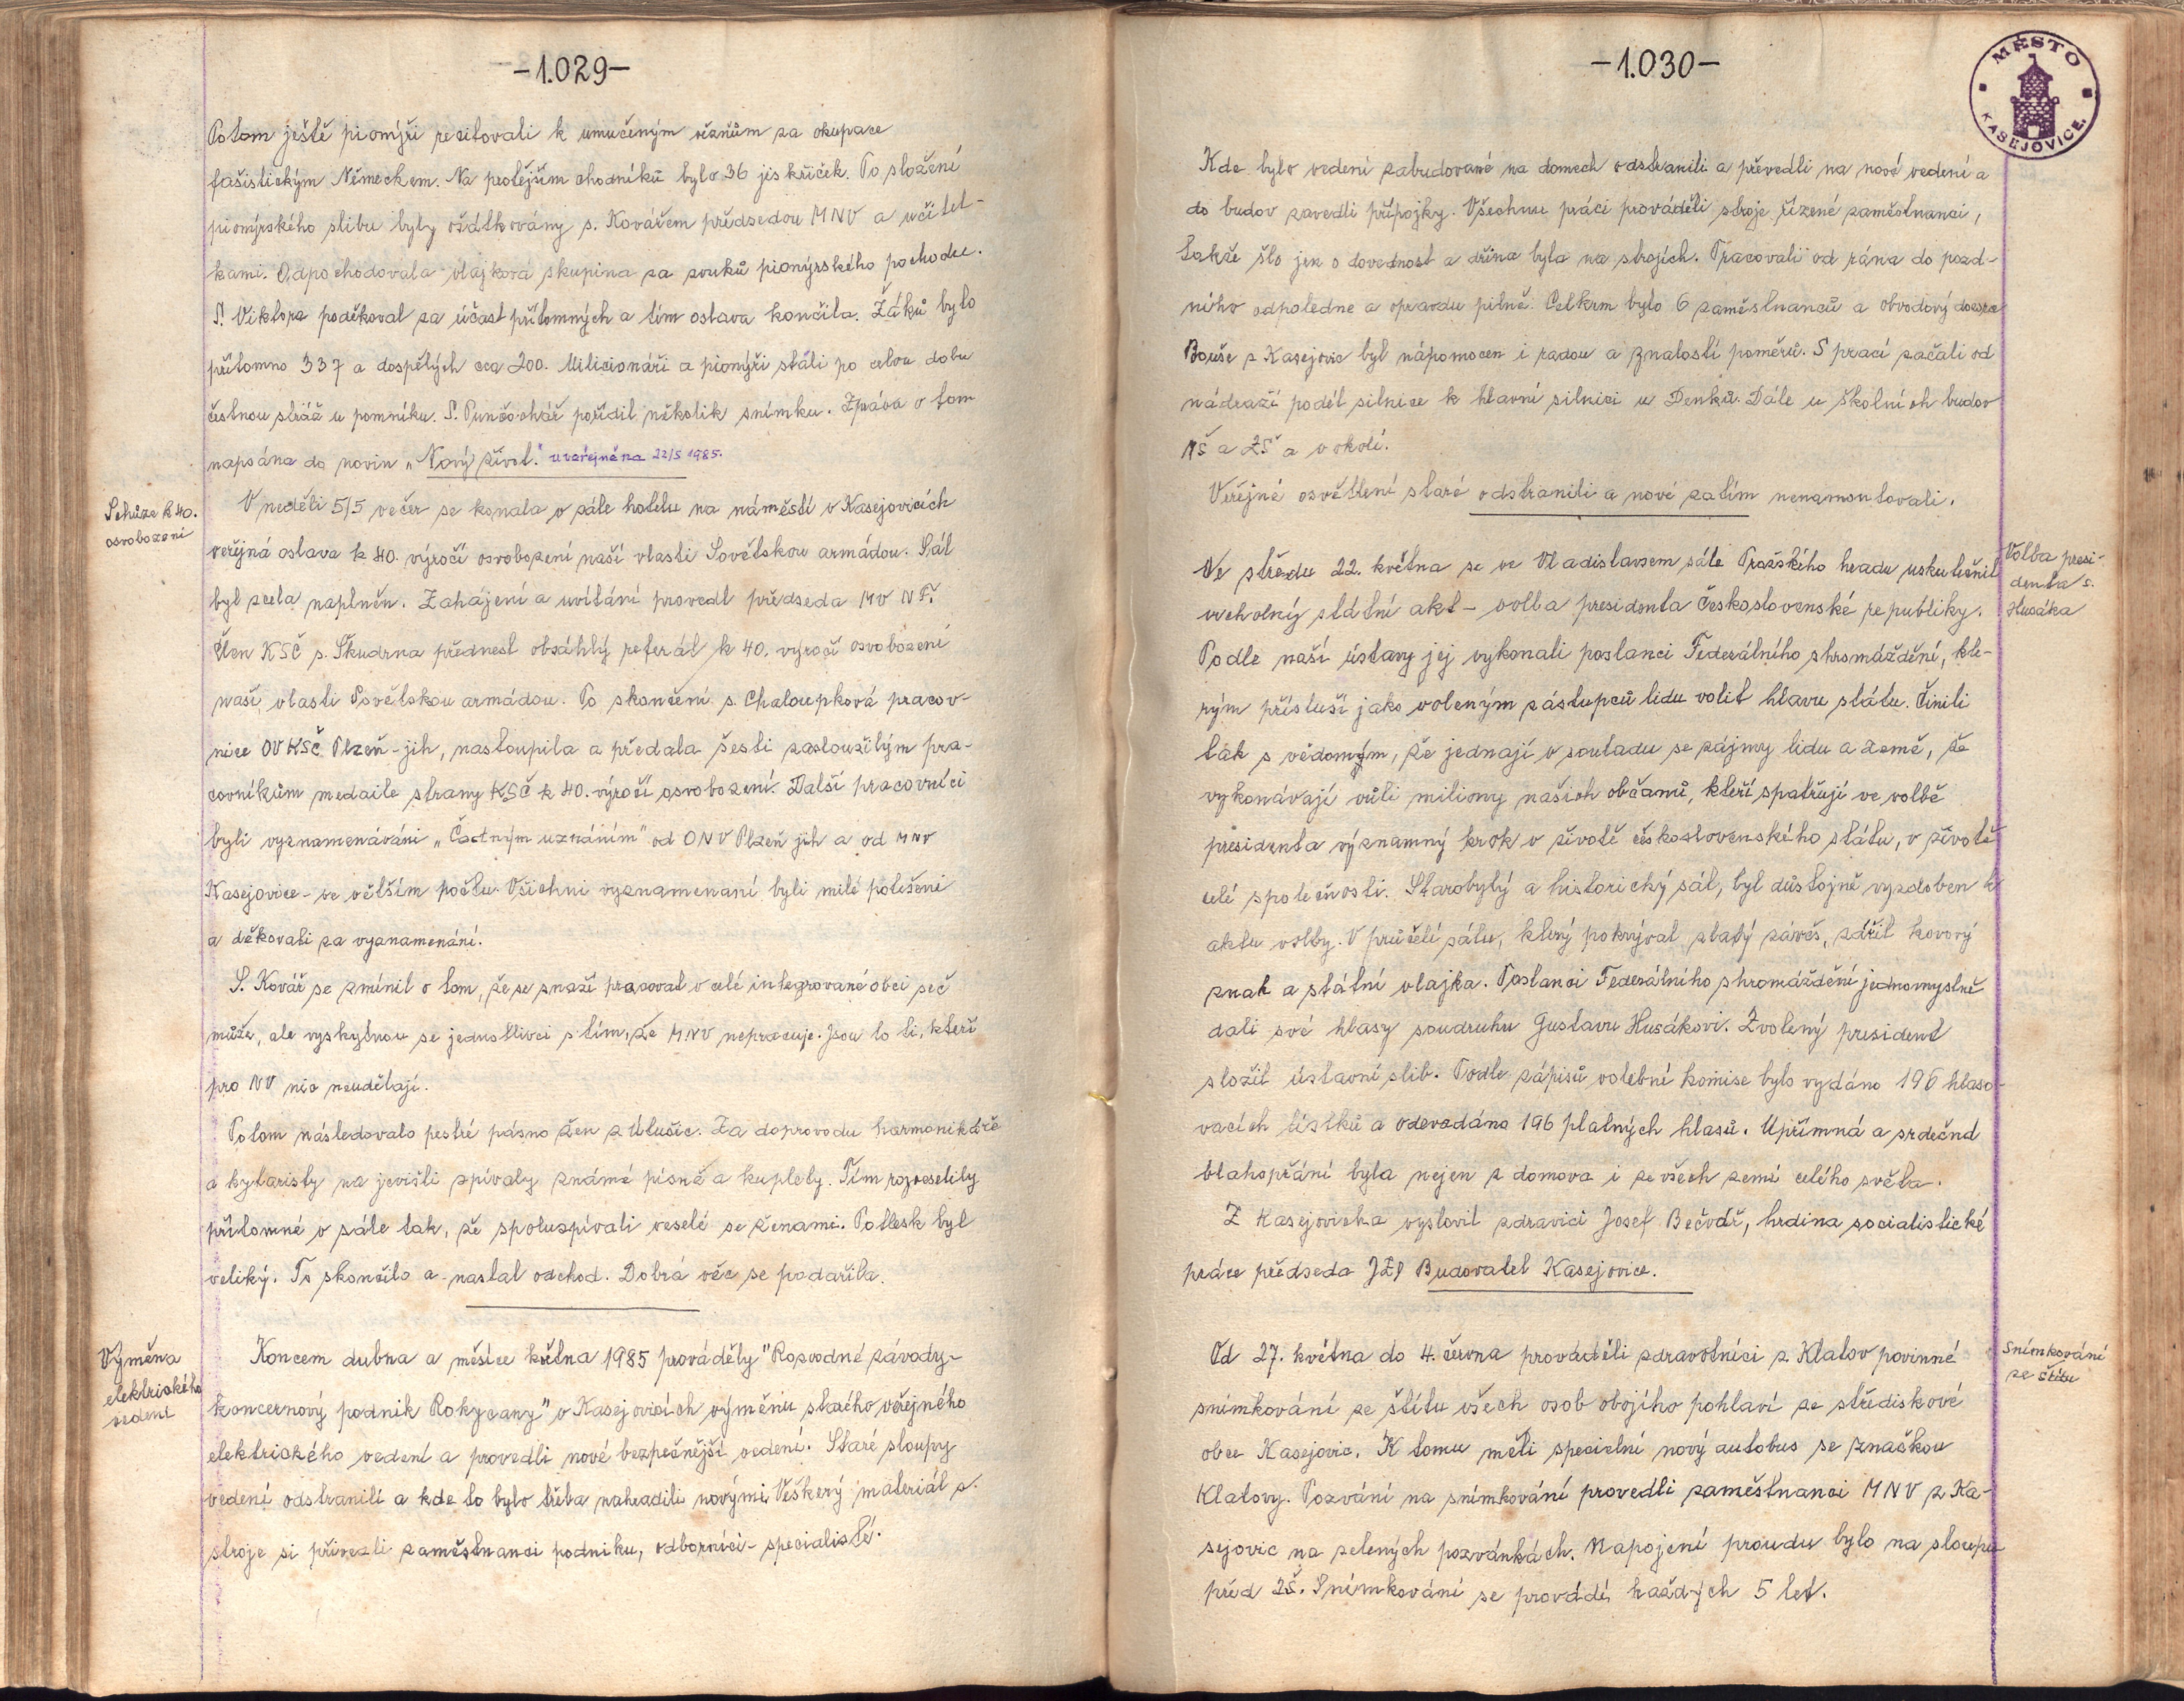 -1.029-
Potom ještě pionýři recitovali k umučeným vězňům za okupace
fašistickým Německem. Na protějším chodníků bylo 36 jiskřiček. Po složení
pionýrského slibu byly ošátkovány s. Kovářem předsedou MNV a učitel-
kami. Odpochodovala vlajková skupina za zvuků pionýrského pochodu.
S. Viktora poděkoval za účast přítomných a tím oslava končila. Žáků bylo
přítomno 337 a dospělých cca 200. Milicionáři a pionýři stáli po celou dobu
čestnou stráž u pomníku. S. Punčochář pořídil několik snímku. Zpráva o tom
napsána do novin „Nový život." uveřejněna 22/5 1985.
Schůze k 40.
osvobození
V neděli 5/5 večer se konala v sále hotelu na náměstí v Kasejovicích
veřejná oslava k 40. výročí osvobození naší vlasti Sovětskou armádou. Sál
byl zcela naplněn. Zahájení a uvítání provedl předseda MV NF.
Člen KSČ s. Škudrna přednesl obsáhlý referát k 40. výročí osvobození
naší vlasti Sovětskou armádou. Po skončení s. Chaloupková pracov-
nice OV KSČ Plzeň-jih, nastoupila a předala šesti zasloužilým pra-
covníkům medaile strany KSČ k 40. výročí osvobození. Další pracovníci
byli vyznamenáváni „Čestným uznáním" od ONV Plzeň jih a od MNV
Kasejovice - ve větším počtu. Všichni vyznamenaní byli milé potěšeni
a děkovali za vyznamenání.
S. Kovář se zmínil o tom, že se snaží pracovat v celé integrované obci seč
může, ale vyskytnou se jednotlivci s tím, že MNV nepracuje. Jsou to ti, kteří
pro NV nic neudělají.
Potom následovalo pestré pásmo žen z Újlušic. Za doprovodu harmonikáře
a kytaristy na jevišti zpívaly známé písně a kuplety. Tím rozveselily
přítomné v sále tak, že spoluzpívali veselé se ženami. Potlesk byl
veliký. To skončilo a nastal odchod. Dobrá věc se podařila.
Výměna
elektrického
vedení
Koncem dubna a měsíce května 1985 prováděly "Rozvodné závody-
koncernový podnik Rokycany" v Kasejovicích výměnu starého veřejného
elektrického vedení a provedli nové bezpečnější vedení. Staré sloupy
vedení odstranili a kde to bylo třeba nahradili novými. Veškerý materiál s.
stroje si přivezli zaměstnanci podniku, odborníci - specialisté.
-1.030-
MĚSTO
KASEJOVICE.
Kde bylo vedení zabudované na domech odstranili a převedli na nové vedení a
do budov zavedli přípojky. Všechnu práci prováděli stroje řízené zaměstnanci,
takže šlo jen o dovednost a dřina byla na strojích. Pracovali od rána do pozd-
ního odpoledne a opravdu pilně. Celkem bylo 6 zaměstnanců a obvodový dozorce
Bouše z Kasejovic byl nápomocen i radou a znalostí poměrů. S prací začali od
nádraží podél silnice k hlavní silnici u Denků. Dále u školních budov
MŠ a ZŠ a v okolí.
Veřejné osvětlení staré odstranili a nové zatím nenamontovali.
Volba presi-
denta s.
Husáka
Ve středu 22. května se ve Vladislavsem sále Pražského hradu uskutečnil
vrcholný státní akt - volba presidenta Československé republiky.
Podle naší ústavy jej vykonali poslanci Federálního shromáždění, kte-
rým přísluší jako voleným zástupců lidu volit hlavu státu. Činili
tak s vědomým, že jednají v souladu se zájmy lidu a země, že
vykonávají vůli miliony našich občanů, kteří spatřují ve volbě
presidenta významný krok v životě československého státu, v životě
celé společnosti. Starobylý a historický sál, byl důstojně vyzdoben k
aktu volby. V průčelí sálu, který pokrýval zlatý závěs, zářil kovový
znak a státní vlajka. Poslanci Federálního shromáždění jednomyslně
dali své hlasy soudruhu Gustavu Husákovi. Zvolený president
složil ústavní slib. Podle zápisů volební komise bylo vydáno 196 hlaso-
vacích lístků a odevzdáno 196 platných hlasů. Upřímná a srdečná
blahopřání byla nejen z domova i ze všech zemí celého světa.
Z Kasejovicka vyslovil zdravici Josef Bečvář, hrdina socialistické
práce předseda JZD Budovatel Kasejovice.
Snímkování
ze štítu
Od 27. května do 4. června prováděli zdravotníci z Klatov povinné
snímkování ze štítu všech osob obojího pohlaví ze střediskové
obce Kasejovic. K tomu měli specielní nový autobus se značkou
Klatovy. Pozvání na snímkování provedli zaměstnanci MNV z Ka-
sejovic na zelených pozvánkách. Napojení proudu bylo na sloupu
před ZŠ. Snímkování se provádí každých 5 let.